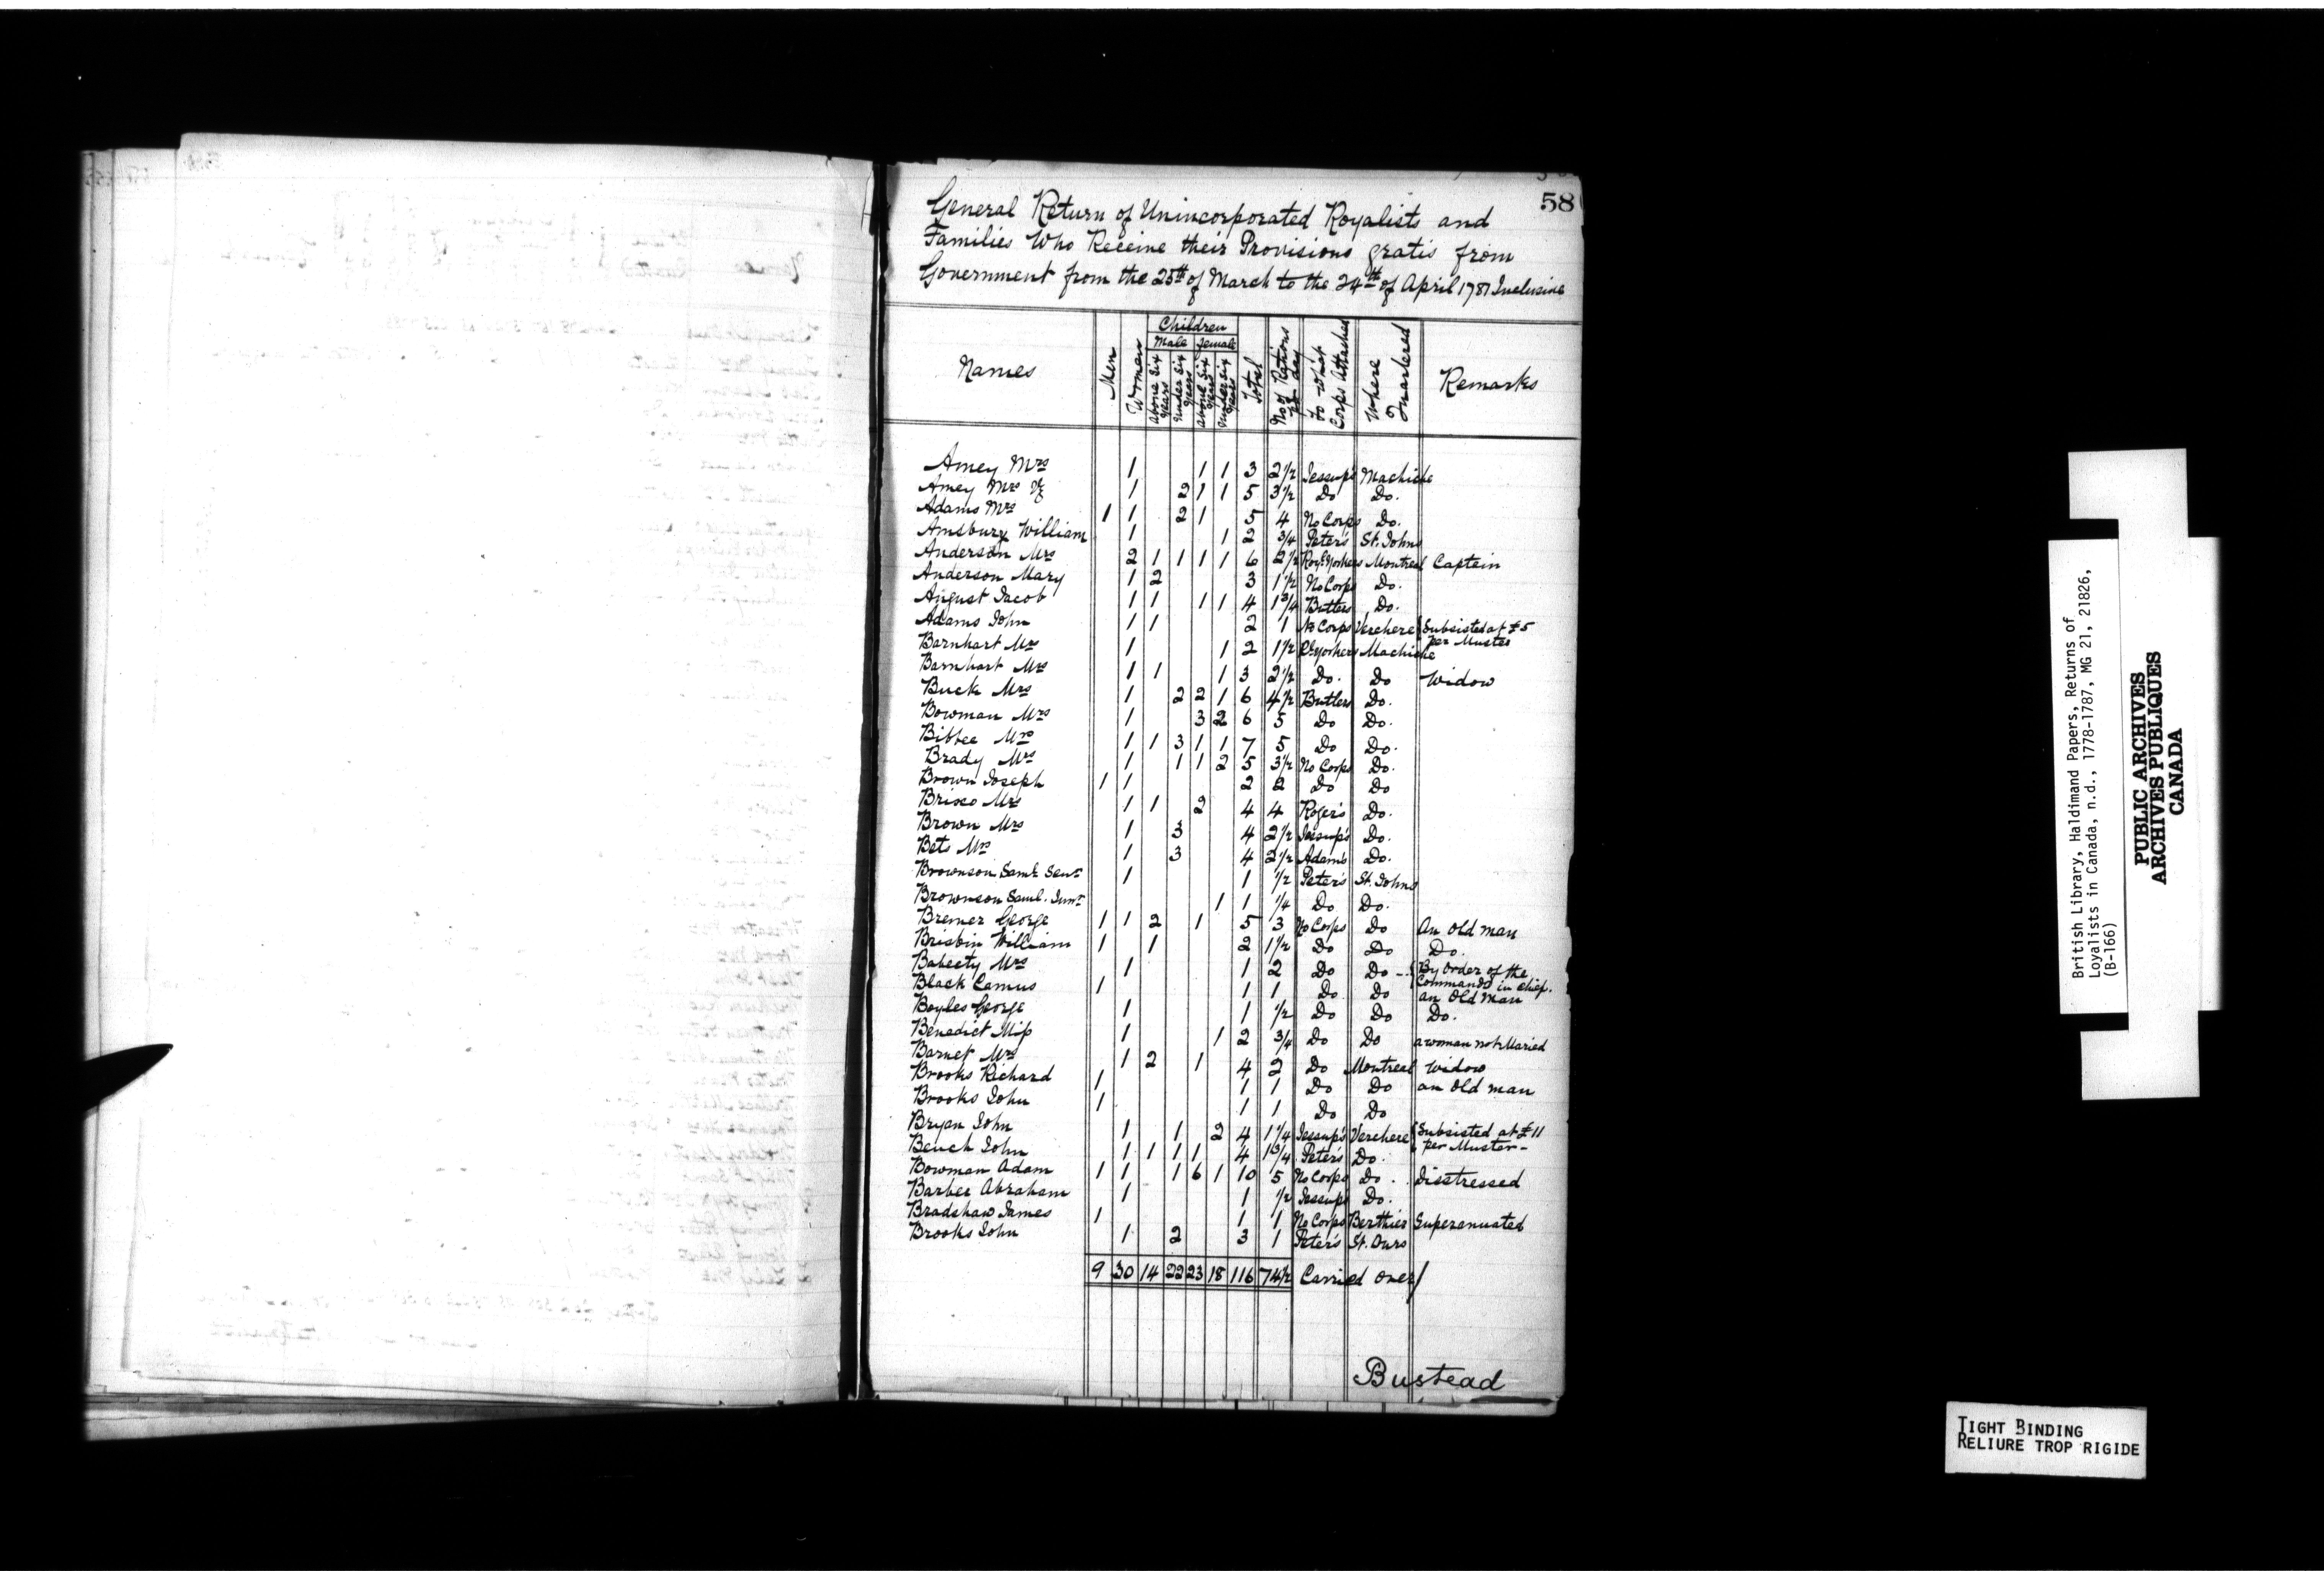 58
General Return of Unincorporated Royalists and
Families Who Receive their Provisions gratis from
Government from the 25th of March to the 24th of April 1781 Inclusive
Names Men Women Children Male Female above Six Years under Six Years above Six Years under Six Years Total No of Rations pr day To what Corps Attached Where Quartered Remarks
Amey Mrs 1 1 1 3 2 1/2 Jessup's Machiche
Amey Mrs 1 2 1 1 5 3 1/2 Do Do.
Adams Mrs 1 1 2 1 5 4 No Corps Do.
Amsbury William 1 1 2 3/4 Peter's St. Johns
Anderson Mrs 2 1 1 1 1 6 2 1/2 Royl Yorkers Montreal Captain
Anderson Mary 1 2 3 1 1/2 No Corps Do.
August Jacob 1 1 1 1 4 1 3/4 Butlers Do.
Adams John 1 1 2 1 No Corps Verchere Subsisted at £5 per Muster
Barnhart Mrs 1 1 2 1 1/2 Rl Yorkers Machiche
Barnhart Mrs 1 1 1 3 2 1/2 Do. Do Widow
Buck Mrs 1 2 2 1 6 4 1/2 Butlers Do.
Bowman Mrs 1 3 2 6 5 Do Do.
Bibbee Mrs 1 1 3 1 1 7 5 Do Do.
Brady Mrs 1 1 1 2 5 3 1/2 No Corps Do.
Brown Joseph 1 1 2 2 Do Do
Brisco Mrs 1 1 2 4 4 Roger's Do.
Brown Mrs 1 3 4 2 1/2 Jessup's Do.
Bets Mrs 1 3 4 2 1/2 Adams Do.
Brownson Saml. Senr 1 1 1/2 Peter's St. Johns
Brownson Saml. Junr 1 1 1/4 Do Do.
Bremer George 1 1 2 1 5 3 No Corps Do An Old man
Brisbin William 1 1 2 1 1/2 Do Do Do.
Babeety Mrs 1 1 2 Do Do - By Order of the Commandr in Chief.
Black Camus 1 1 1 Do. Do an Old Man
Boyles George 1 1 1/2 Do Do Do.
Benedict Miss 1 1 2 3/4 Do Do a woman not Maried
Barnet Mrs 1 2 1 4 2 Do Montreal Widow
Brooks Richard 1 1 1 Do Do an Old man
Brooks John 1 1 1 Do Do
Bryan John 1 1 2 4 1 1/4 Jessup's Verchere Subsisted at £11 per Muster-
Beuch John 1 1 1 1 4 1 3/4 Peter's Do.
Bowman Adam 1 1 1 6 1 10 5 No Corps Do. Disstressed
Barber Abraham 1 1 1/2 Jessups Do.
Bradshaw James 1 1 1 No Corps Berthier Superanuated
Brooks John 1 2 3 1 Peter's St. Ours
9 30 14 22 23 18 116 74 1/2 Carried over/
Bustead
British Library, Haldimand Papers, Returns of
Loyalists in Canada, n.d., 1778-1787, MG 21, 21826,
(B-166)
PUBLIC ARCHIVES
ARCHIVES PUBLIQUES
CANADA
TIGHT BINDING
RELIURE TROP RIGIDE